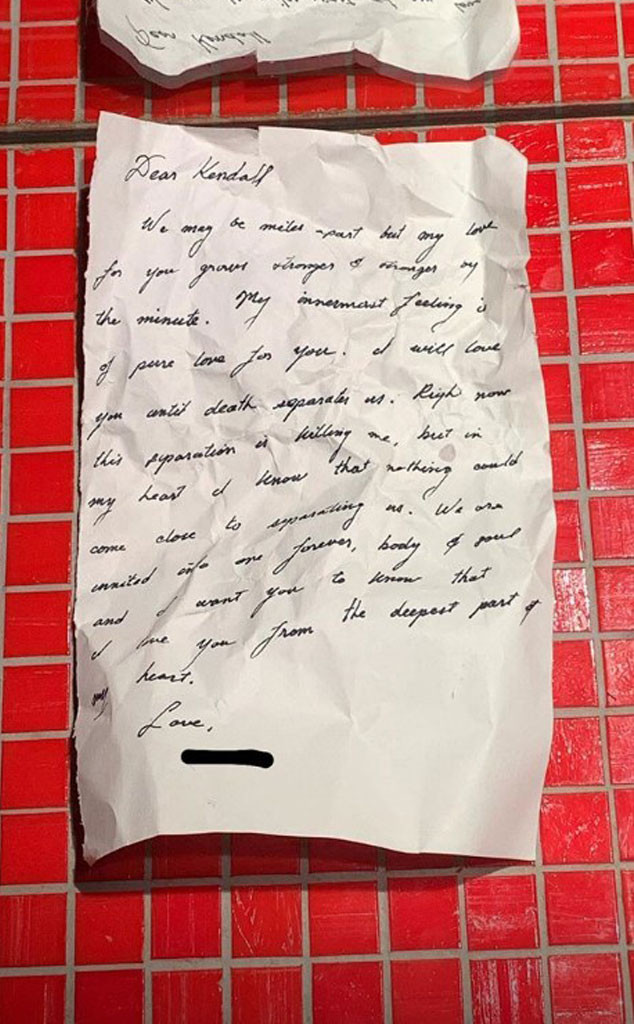 Dear Kendall
Dear Kendall
We may be miles -part but my love
for you grows stronger & stronger by
the minute. My innermost feeling is
of pure love for you. I will love
you until death separates us. Righ now
this separation is killing me, but in
my heart I know that nothing could
come close to separating us. We are
unnited into one forever, body & soul
and I want you to know that
I love you from the deepest part of
my heart.
Love,